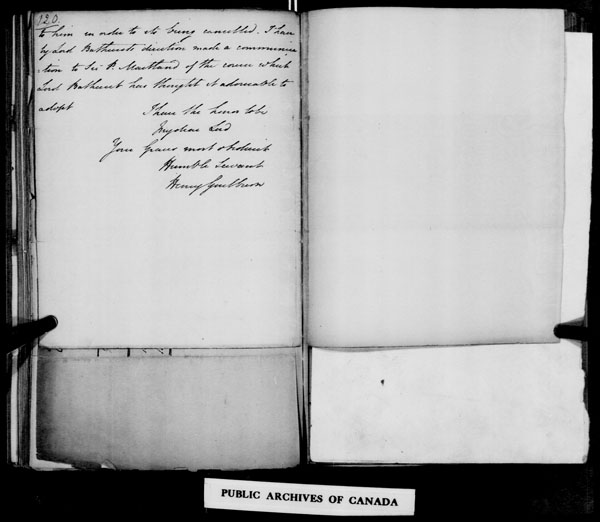 120.
to him in order to its being cancelled. I have
by Lord Bathursts direction made a communica
-tion to Sir P. Maitland of the course which
Lord Bathurst has thought it adviseable to
adopt
I have the honor to be
My dear Lord
Your Graces most obedient
Humble Servant
Henry Goulburn
PUBLIC ARCHIVES OF CANADA